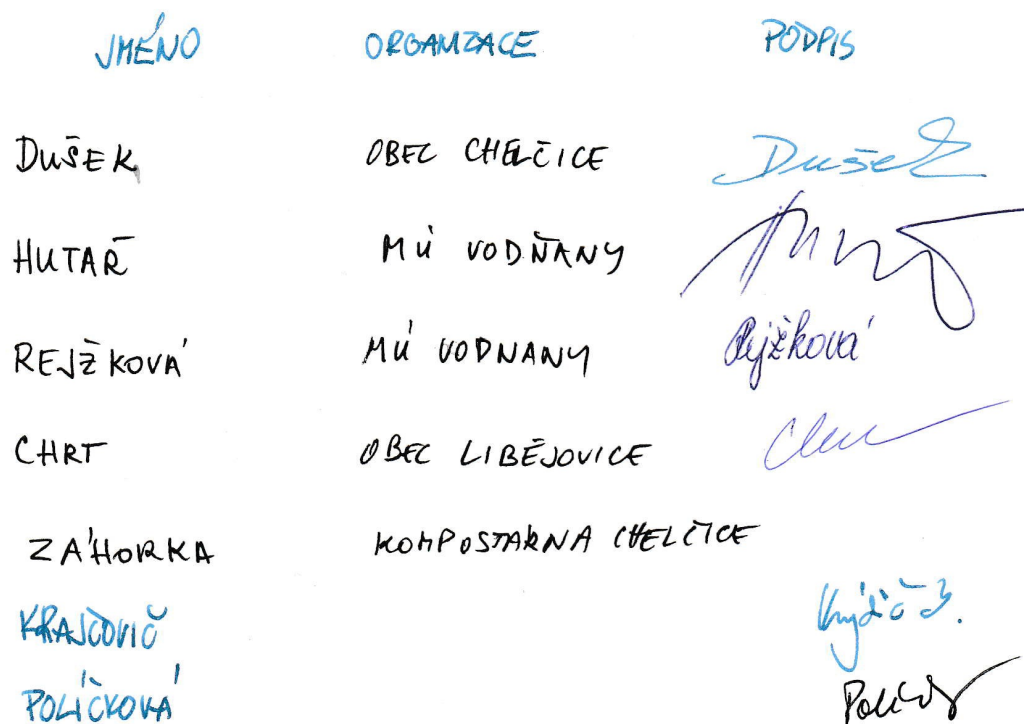 JMÉNO ORGANIZACE PODPIS
DUŠEK OBEC CHELČICE Dušek
HUTAŘ MÚ VODŇANY
REJŽKOVÁ MÚ VODNANY Rejžková
CHRT OBEC LIBĚJOVICE
ZÁHORKA KOMPOSTÁRNA CHELČICE
KRAJČOVIČ
POLÍČKOVÁ